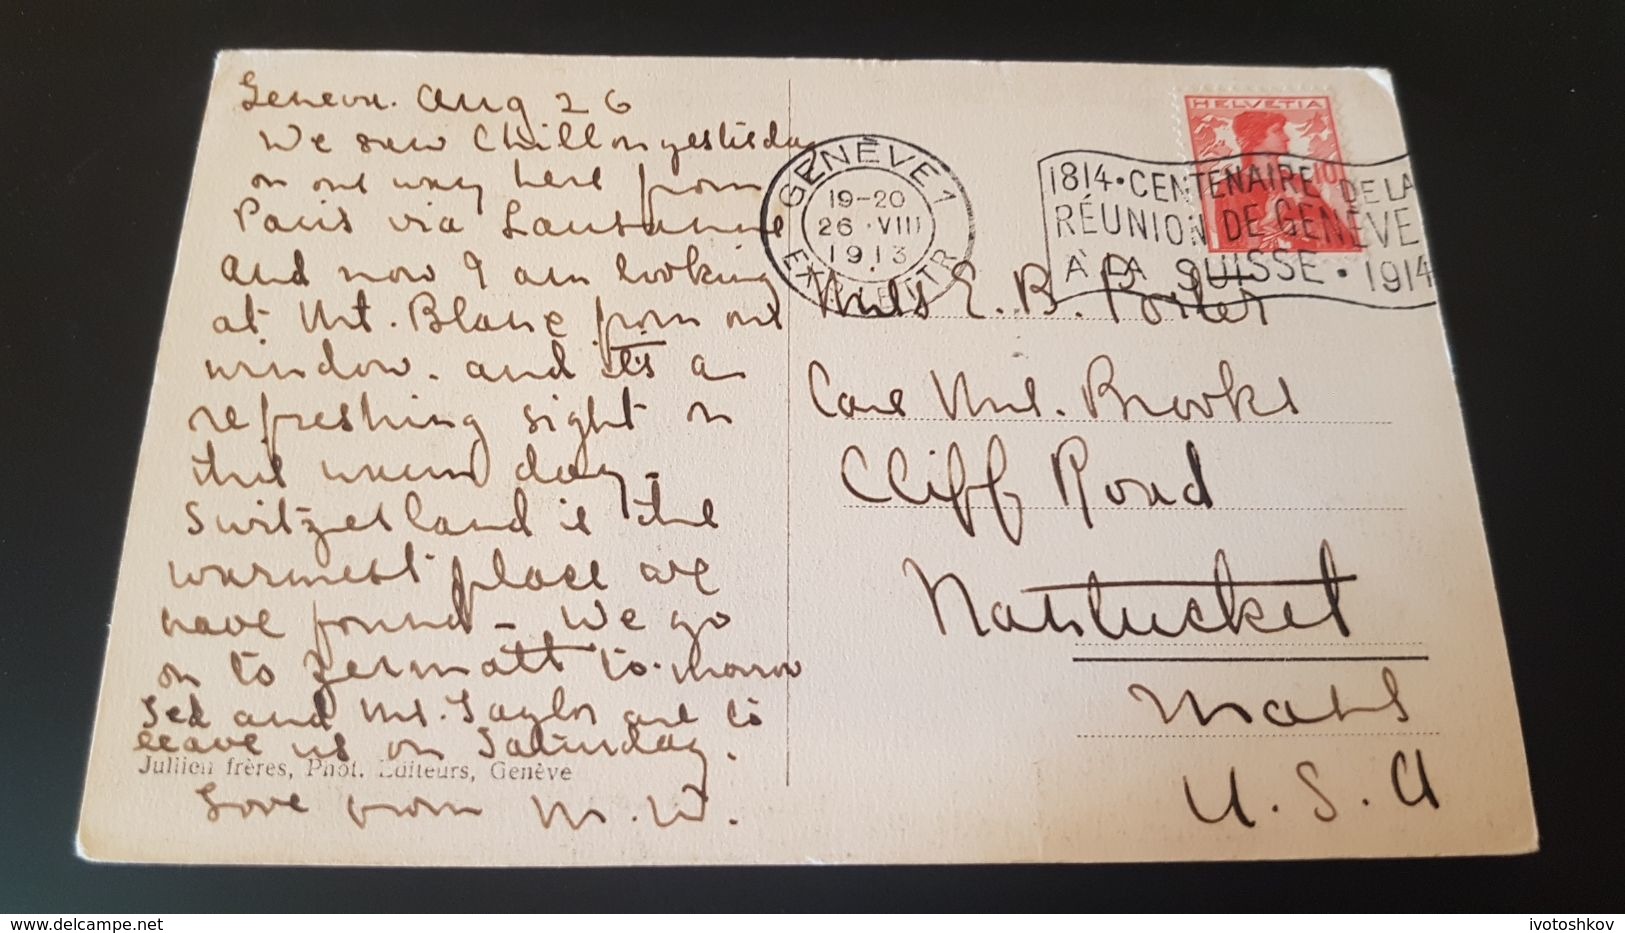 Geneva. Aug 26
We saw Chillon yesterday
on our way here from
Paris via Lausanne
and now I am looking
at Mt. Blanc from our
window. and it's a
refreshing sight on
this warm day -
Switzerland is the
warmest place we
have found - We go
on to Zermatt to-morrow
Ted and Mr. Taylor are to
leave us on Saturday.
Jullien frères, Phot. Editeurs, Genève
Love from M. W.
HELVETIA
10
GENÈVE 1
19-20
26 · VIII
1913
EXP. LETTR.
1814 · CENTENAIRE DE LA
RÉUNION DE GENÈVE
À LA SUISSE · 1914
Miss E. B. Porter
Care Mrs. Brooks
Cliff Road
Nantucket
Mass
U. S. A
delcampe.net
ivotoshkov